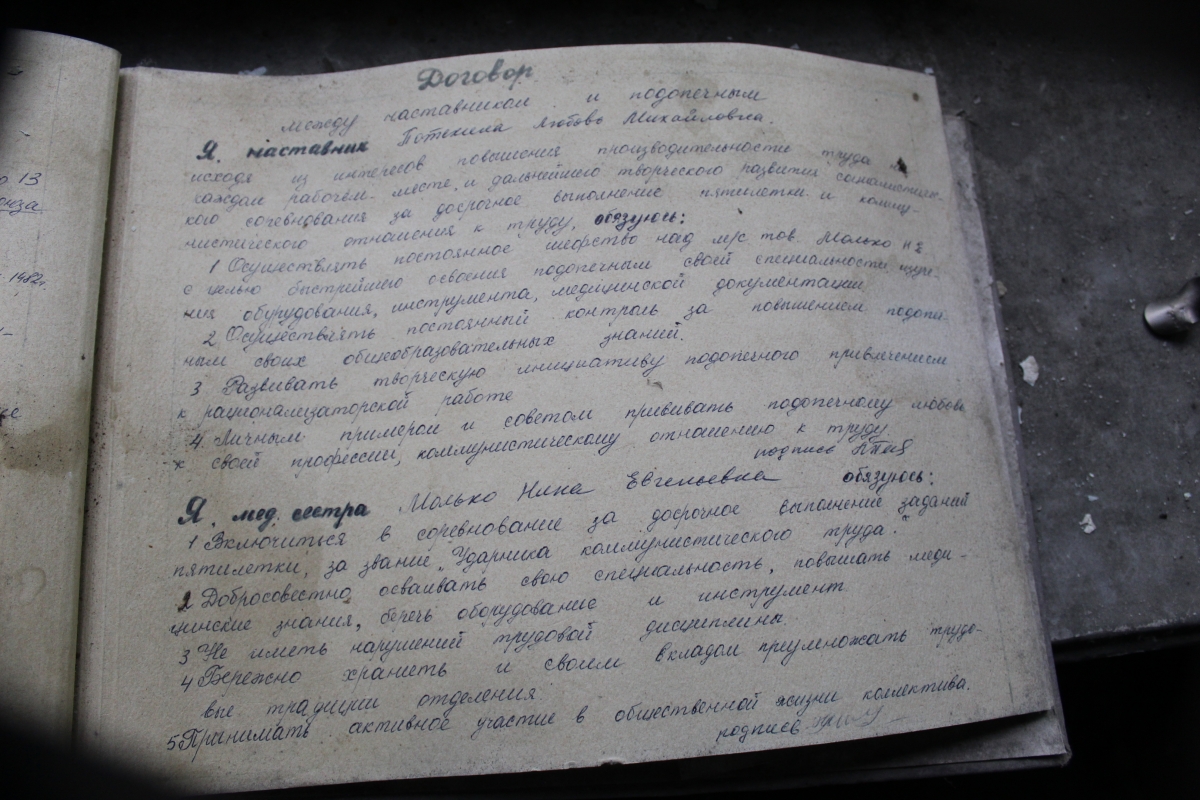 о 13
юза
1982г.
Договор
между наставником и подопечным
Я, наставник Потехина Любовь Михайловна.
исходя из интересов повышения производительности труда на
каждом рабочем месте, и дальнейшего творческого развития социалистичес-
кого соревнования за досрочное выполнение пятилетки и комму-
нистического отношения к труду, обязуюсь:
1 Осуществлять постоянное шефство над м/с тов. Молько Н Е
с целью быстрейшего освоения подопечным своей специальности, изуче-
ния оборудования, инструмента, медицинской документации.
2 Осуществлять постоянный контроль за повышением подопеч-
ным своих общеобразовательных знаний.
3 Развивать творческую инициативу подопечного привлечением
к рационализаторской работе
4. Личным примером и советом прививать подопечному любовь
к своей профессии, коммунистическому отношению к труду.
подпись
Я, мед. сестра Молько Нина Евгеньевна обязуюсь:
1 Включиться в соревнование за досрочное выполнение заданий
пятилетки, за звание „Ударника коммунистического труда."
2 Добросовестно осваивать свою специальность, повышать меди-
цинские знания, беречь оборудование и инструмент.
3 Не иметь нарушений трудовой дисциплины.
4 Бережно хранить и своим вкладом приумножать трудо-
вые традиции отделения.
5 Принимать активное участие в общественной жизни коллектива.
подпись